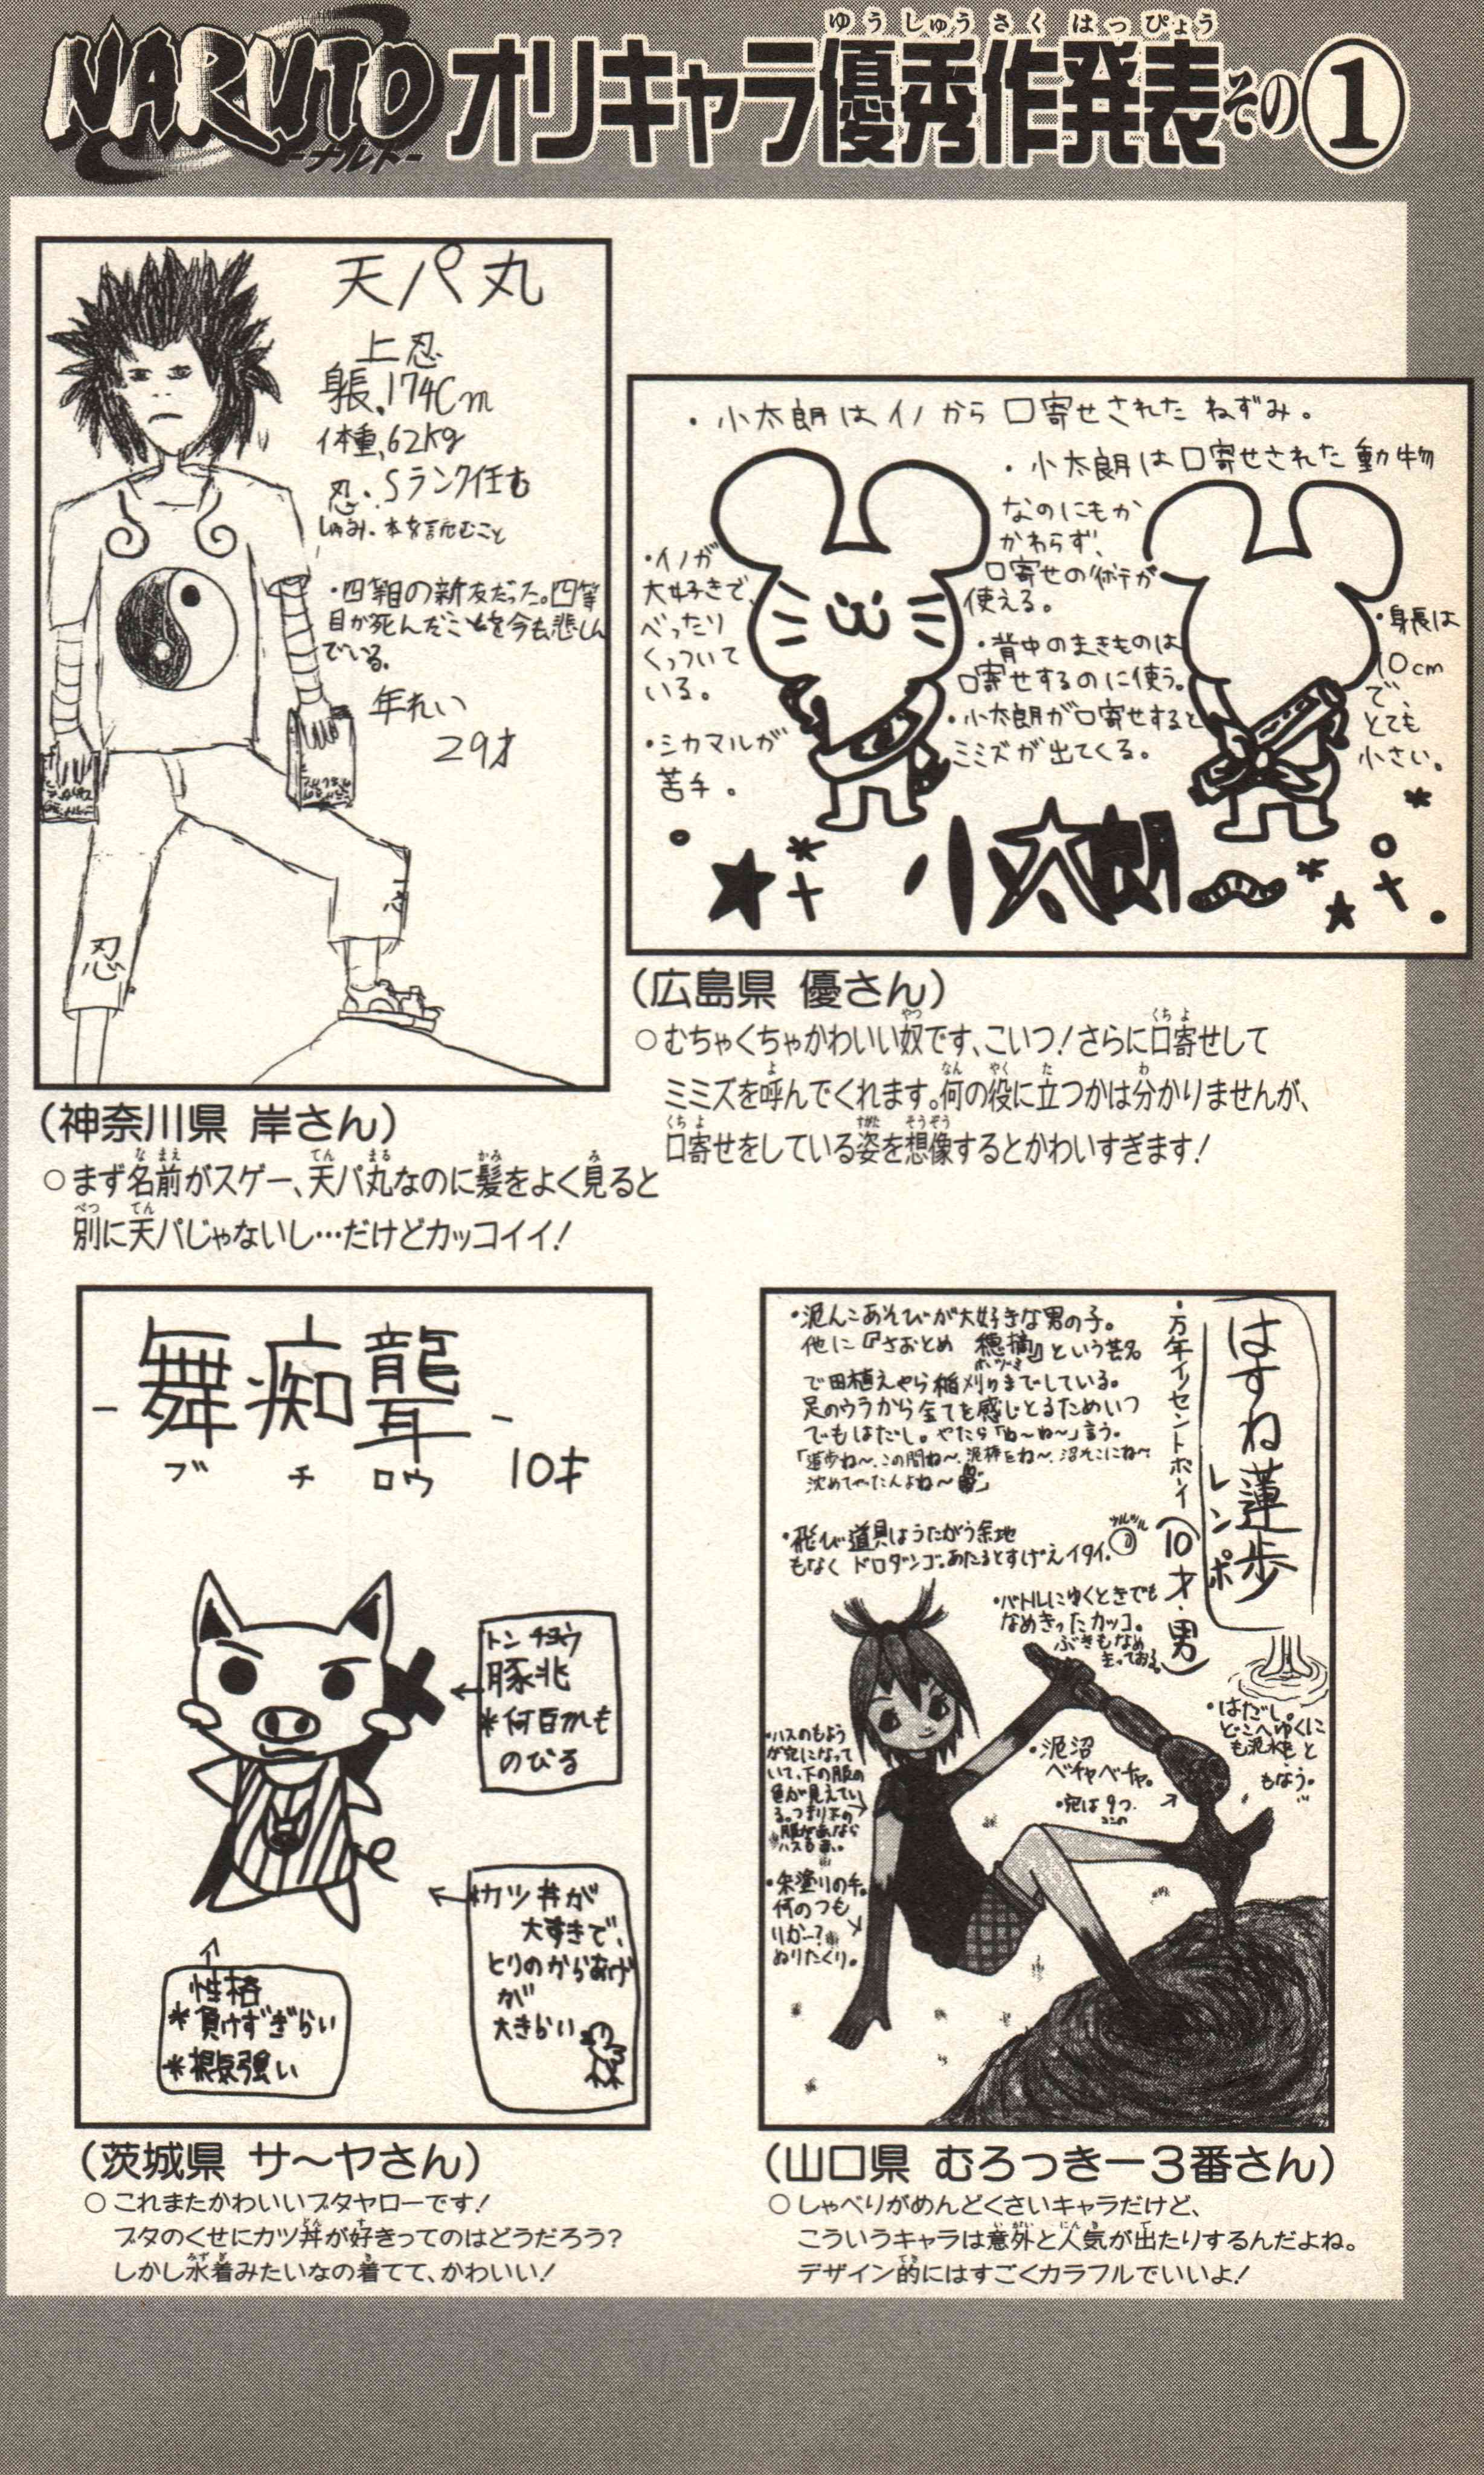 NARUTO
ーナルトー
オリキャラ優秀作発表その①
ゆうしゅうさくはっぴょう
天パ丸
上忍
身長.174Cm
体重.62kg
忍.Sランク任む
しゅみ.本を読むこと
年れい
29才
(神奈川県 岸さん)
○まず名前がスゲー、天パ丸なのに髪をよく見ると
別に天パじゃないし…だけどカッコイイ!
・小太朗はイノから口寄せされたねずみ。
・小太朗は口寄せされた動物
なのにもか
かわらず、
口寄せの術が
使える。
・イノが
大好きで、
べったり
くっついて
いる。
・シカマルが
苦手。
・背中のまきものは
口寄せするのに使う。
・小太朗が口寄せすると
ミミズが出てくる。
・身長は
10cm
で、
とても
小さい。
小太朗
(広島県 優さん)
○むちゃくちゃかわいい奴です、こいつ!さらに口寄せして
ミミズを呼んでくれます。何の役に立つかは分かりませんが、
口寄せをしている姿を想像するとかわいすぎます!
-舞痴聾-
ブ チ ロウ
10才
トン チョウ
豚兆
*何百mも
のびる
カツ丼が
大すきで、
とりのからあげ
が
大きらい
性格
*負けずぎらい
*根気強い
(茨城県 サ〜ヤさん)
○これまたかわいいブタヤローです!
ブタのくせにカツ丼が好きってのはどうだろう?
しかし水着みたいなの着てて、かわいい!
はすね蓮歩
レンポ
・万年イノセントボーイ(10才・男)
・泥んこあそびが大好きな男の子。
他に『さおとめ 穂摘』という芸名
で田植えやら稲刈りまでしている。
足のウラから全てを感じとるためいつ
でもはだし。やたら「ね〜ね〜」言う。
「蓮歩ね〜、この間ね〜、泥棒をね〜、沼そこにね〜
沈めてやったんよね〜」
・飛び道具はうたがう余地
もなくドロダンゴ。あたるとすげえイタイ。
・バトルにゆくときでも
なめきったカッコ。
ぶきもなめ
きっておる。
・はだし。
どこへゆくに
も泥水と
もなう。
・泥沼
ベチャベチャ。
・穴は9つ.
・ハスのもよう
が穴になって
いて、下の服の
色が見えてい
る。つまり下の
・朱塗りの手。
何のつも
りか―?
ぬりたくり。
(山口県 むろっきー3番さん)
○しゃべりがめんどくさいキャラだけど、
こういうキャラは意外と人気が出たりするんだよね。
デザイン的にはすごくカラフルでいいよ!